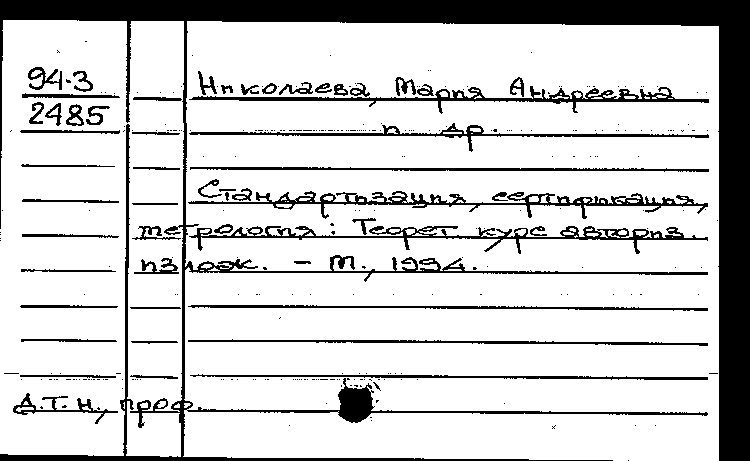 94-3
2485
Николаева, Мария Андреевна
и др.
Стандартизация, сертификация,
метрология: Теорет курс авториз.
излож. - М., 1994.
д.т.н., проф.